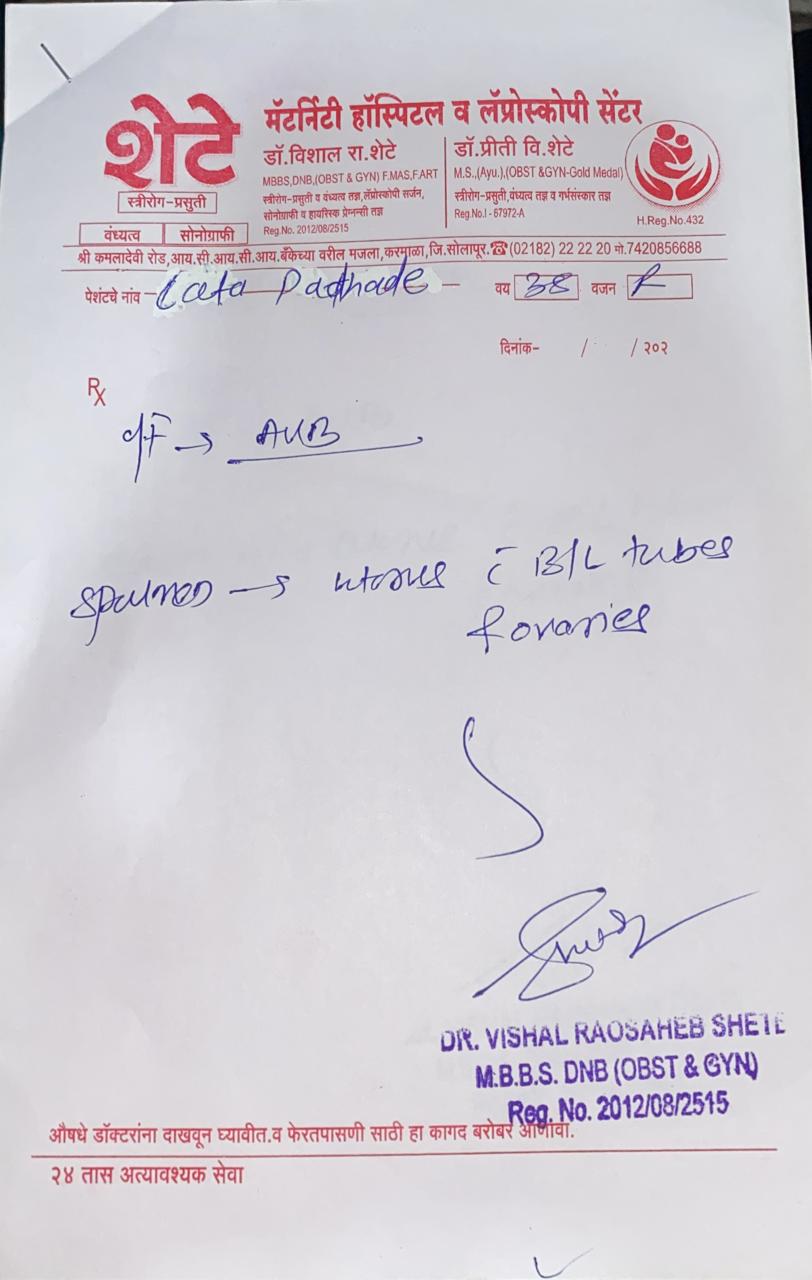 शेटे
स्त्रीरोग-प्रसुती
वंध्यत्व सोनोग्राफी
मॅटर्निटी हॉस्पिटल व लॅप्रोस्कोपी सेंटर
डॉ.विशाल रा.शेटे
MBBS,DNB,(OBST & GYN) F.MAS,F.ART
स्त्रीरोग-प्रसुती व वंध्यत्व तज्ञ,लॅप्रोस्कोपी सर्जन,
सोनोग्राफी व हायरिस्क प्रेग्नन्सी तज्ञ
Reg.No. 2012/08/2515
डॉ.प्रीती वि.शेटे
M.S.,(Ayu.),(OBST &GYN-Gold Medal)
स्त्रीरोग-प्रसुती,वंध्यत्व तज्ञ व गर्भसंस्कार तज्ञ
Reg.No.I - 67972-A
H.Reg.No.432
श्री कमलादेवी रोड,आय.सी.आय.सी.आय.बँकेच्या वरील मजला,करमाळा,जि.सोलापूर.☎(02182) 22 22 20 मो.7420856688
पेशंटचे नांव - Lata वय 38 वजन F
दिनांक- / / २०२
Rx
→ AUB
→ uterus c̄ B/L tubes
& ovaries
DR. VISHAL RAOSAHEB SHETE
M.B.B.S. DNB (OBST & GYN)
Reg. No. 2012/08/2515
औषधे डॉक्टरांना दाखवून घ्यावीत.व फेरतपासणी साठी हा कागद बरोबर आणावा.
२४ तास अत्यावश्यक सेवा